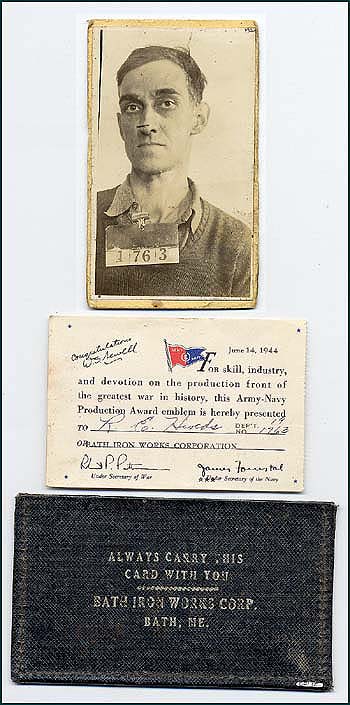 1763
Congratulations
June 14, 1944
For skill, industry,
and devotion on the production front of
the greatest war in history, this Army-Navy
Production Award emblem is hereby presented
TO R. E. DEP'T. NO. 1763
OF BATH IRON WORKS CORPORATION
Under Secretary of War
Under Secretary of the Navy
ALWAYS CARRY THIS
CARD WITH YOU
BATH IRON WORKS CORP.
BATH, ME.